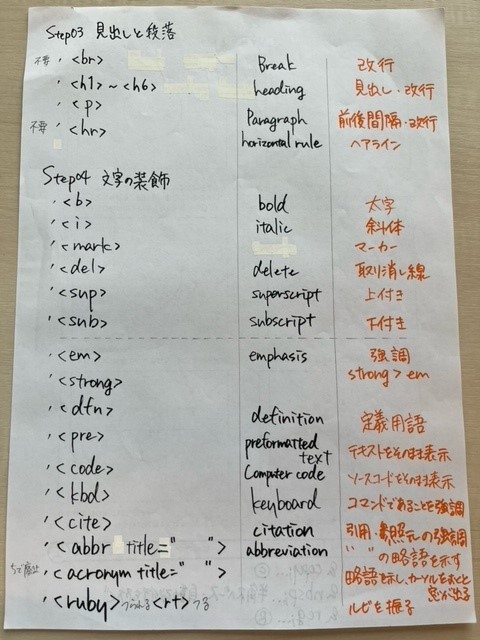 Step03 見出しと段落
不要 ・<br> Break 改行
・<h1>～<h6> heading 見出し・改行
・<p> Paragraph 前後間隔・改行
不要 ・<hr> horizontal rule ヘアライン
Step04 文字の装飾
・<b> bold 太字
・<i> italic 斜体
・<mark> マーカー
・<del> delete 取り消し線
・<sup> superscript 上付き
・<sub> subscript 下付き
・<em> emphasis 強調
・<strong> strong > em
・<dfn> definition 定義用語
・<pre> preformatted text テキストをそのまま表示
・<code> Computer code ソースコードをそのまま表示
・<kbd> keyboard コマンドであることを強調
・<cite> citation 引用・参照元の強調
・<abbr title=" "> abbreviation " " の略語を示す
・<acronym title=" "> 略語を示し、カーソルをおくと窓が出る
・<ruby> つられる <rt> つる ルビを振る